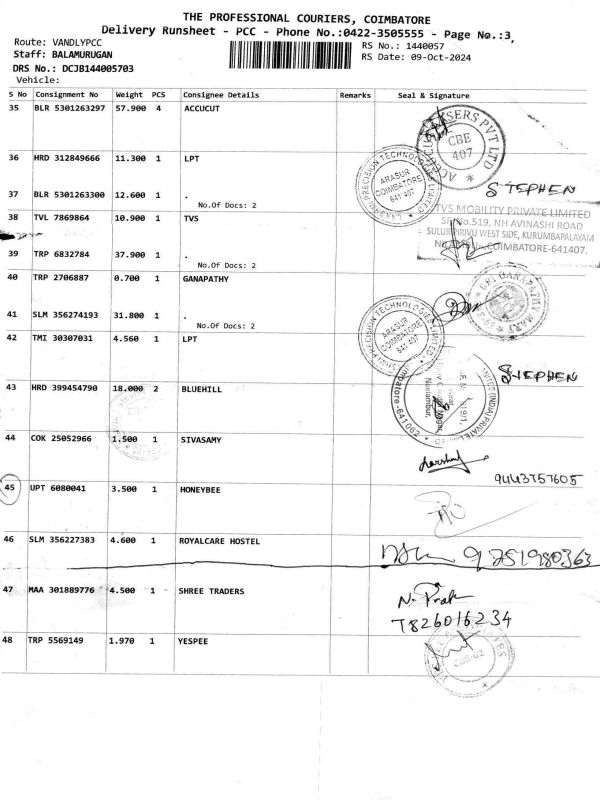 THE PROFESSIONAL COURIERS, COIMBATORE
Delivery Runsheet - PCC - Phone No.:0422-3505555 - Page No.:3,
Route: VANDLYPCC
Staff: BALAMURUGAN
DRS No.: DCJB144005703
Vehicle:
RS No.: 1440057
RS Date: 09-Oct-2024
S No Consignment No Weight PCS Consignee Details Remarks Seal & Signature
35 BLR 5301263297 57.900 4 ACCUCUT
CBE
407
36 HRD 312849666 11.300 1 LPT
ARASUR
COIMBATORE
641 407
37 BLR 5301263300 12.600 1 .
No.Of Docs: 2
STEPHEN
38 TVL 7869864 10.900 1 TVS
TVS MOBILITY PRIVATE LIMITED
SF.No.519, NH AVINASHI ROAD
SULUR PIRIVU WEST SIDE, KURUMBAPALAYAM
COIMBATORE-641407.
39 TRP 6832784 37.900 1 .
No.Of Docs: 2
40 TRP 2706887 0.700 1 GANAPATHY
41 SLM 356274193 31.800 1 .
No.Of Docs: 2
42 TMI 30307031 4.560 1 LPT
ARASUR
COIMBATORE
641 407
STEPHEN
43 HRD 399454790 18.000 2 BLUEHILL
44 COK 25052966 1.500 1 SIVASAMY
9443757605
45 UPT 6080041 3.500 1 HONEYBEE
46 SLM 356227383 4.600 1 ROYALCARE HOSTEL
9751980363
47 MAA 301889776 4.500 1 SHREE TRADERS
7826016234
48 TRP 5569149 1.970 1 YESPEE